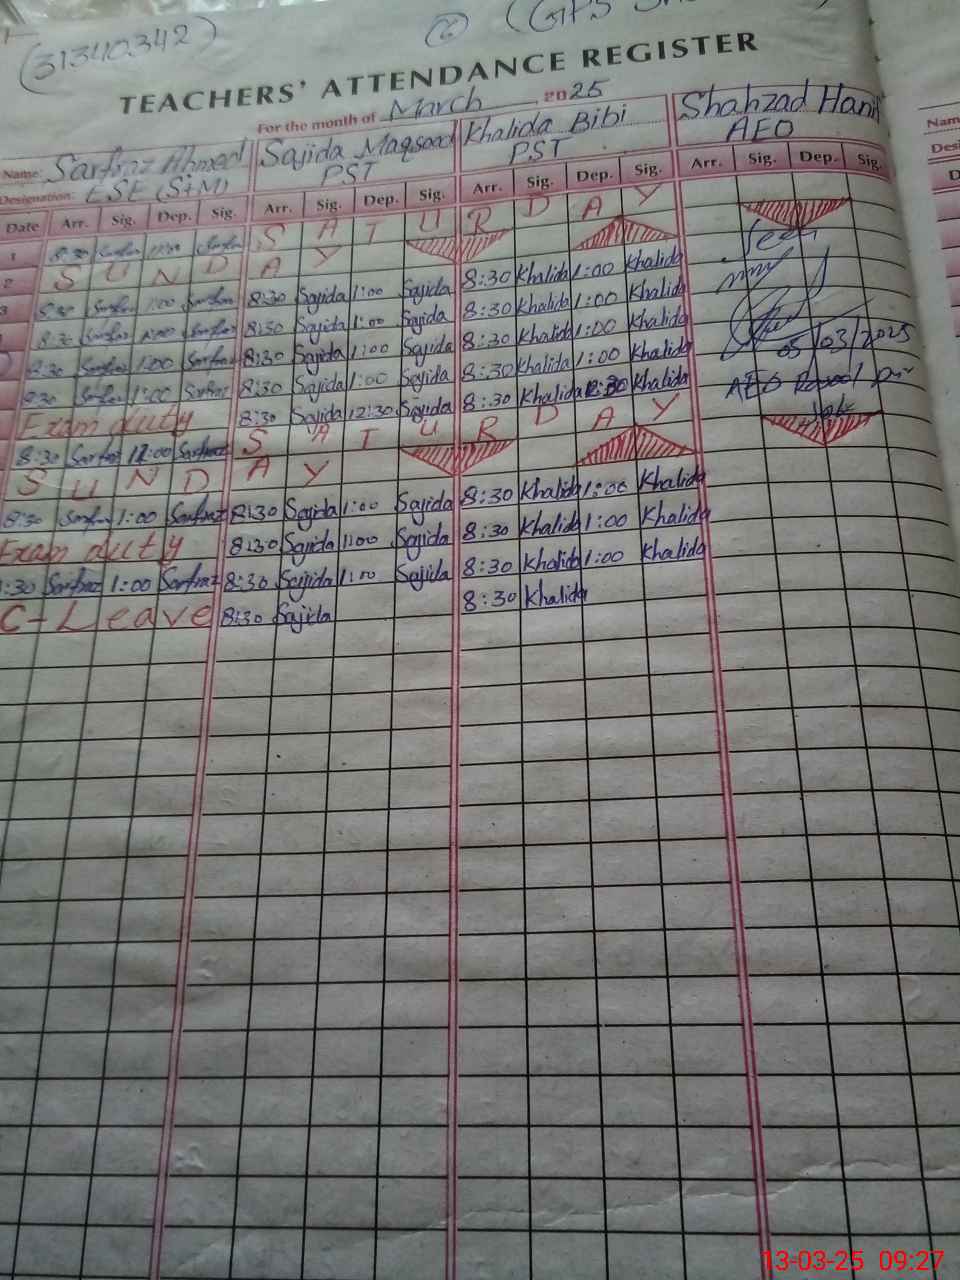 (31340342)
TEACHERS' ATTENDANCE REGISTER
For the month of March 2025
Name: Sarfraz Ahmed Sajida Maqsood Khalida Bibi Shahzad Hanif
Designation: ESE (S+M) PST PST AEO
Date Arr. Sig. Dep. Sig. Arr. Sig. Dep. Sig. Arr. Sig. Dep. Sig. Arr. Sig. Dep. Sig.
1 8:30 Sarfraz Sarfraz S A T U R D A Y
2 S U N D A Y Seen
3 8:30 Sarfraz 1:00 Sarfraz 8:30 Sajida 1:00 Sajida 8:30 Khalida 1:00 Khalida
8:30 Sarfraz 1:00 Sarfraz 8:30 Sajida 1:00 Sajida 8:30 Khalida 1:00 Khalida
8:30 Sarfraz 1:00 Sarfraz 8:30 Sajida 1:00 Sajida 8:30 Khalida 1:00 Khalida 05/03/2025
8:30 Sarfraz 1:00 Sarfraz 8:30 Sajida 1:00 Sajida 8:30 Khalida 1:00 Khalida AEO
Exam duty 8:30 Sajida 12:30 Sajida 8:30 Khalida 12:30 Khalida
8:30 Sarfraz 12:00 Sarfraz S A T U R D A Y
S U N D A Y
8:30 Sarfraz 1:00 Sarfraz 8:30 Sajida 1:00 Sajida 8:30 Khalida 1:00 Khalida
Exam duty 8:30 Sajida 1:00 Sajida 8:30 Khalida 1:00 Khalida
:30 Sarfraz 1:00 Sarfraz 8:30 Sajida 1:00 Sajida 8:30 Khalida 1:00 Khalida
C-Leave 8:30 Sajida 8:30 Khalida
13-03-25 09:27